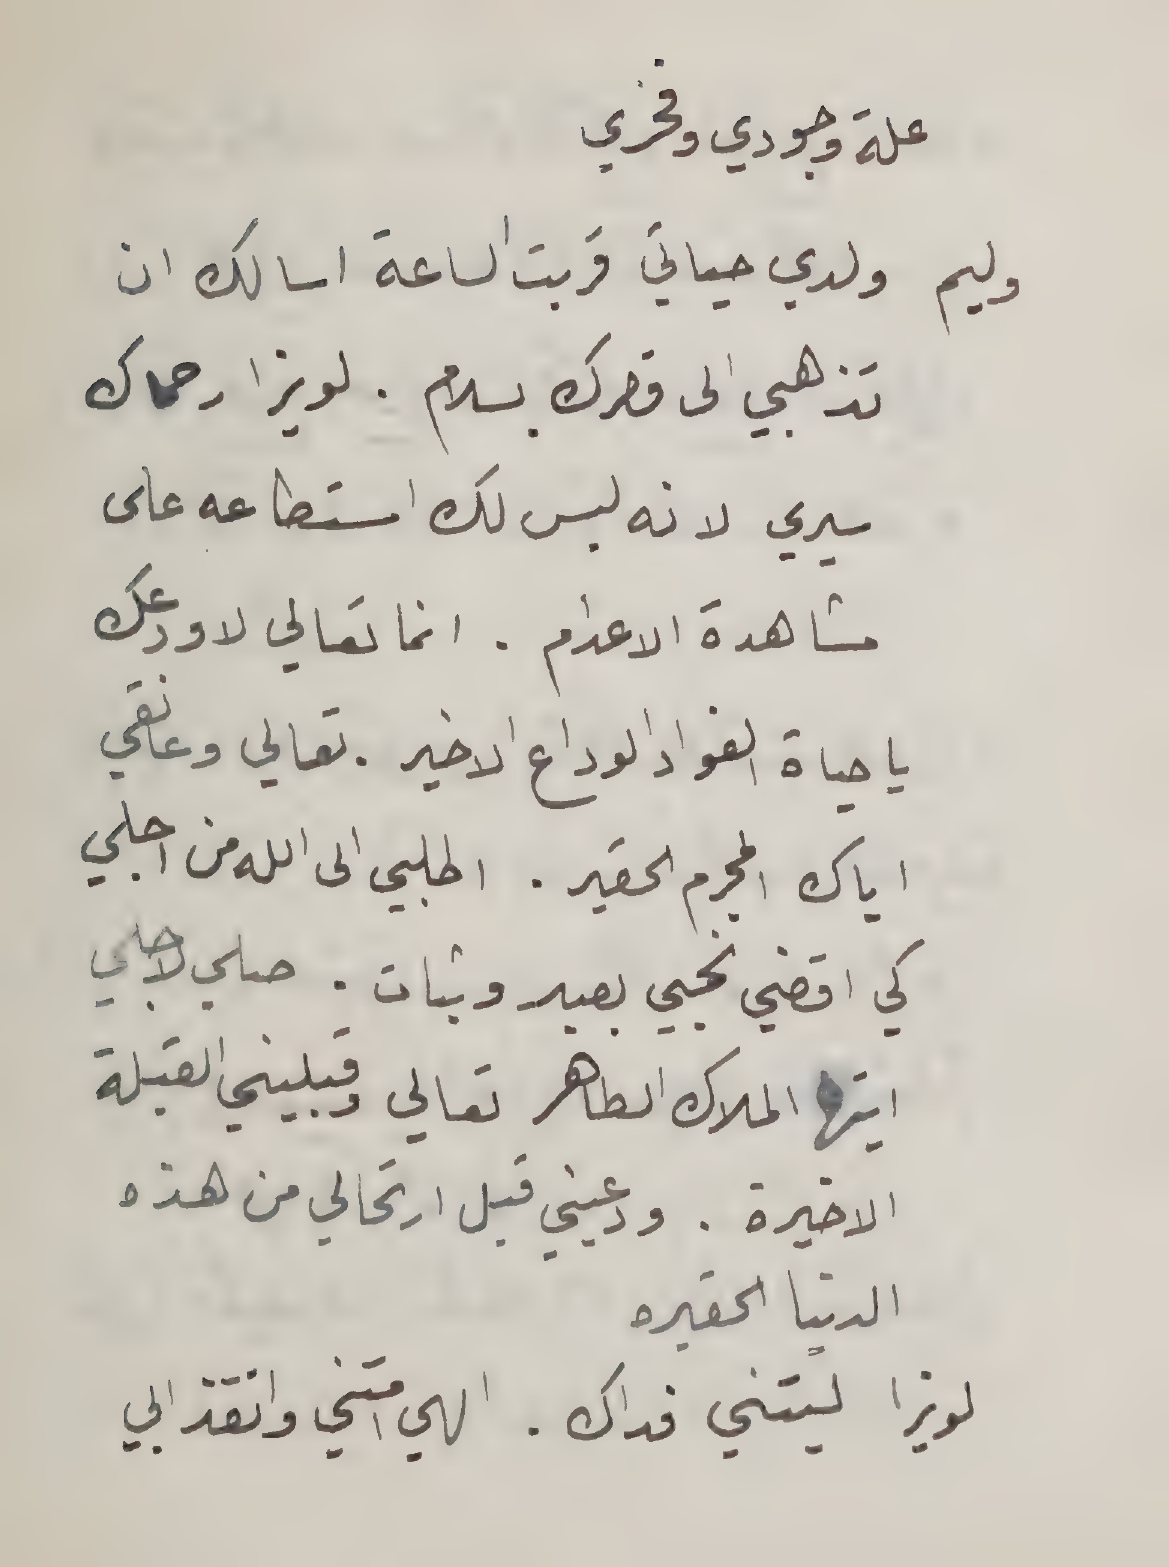 علة وجودي وفخري
وليم ولدي حياتي قربت الساعة اسالك ان
تذهبي الى قصرك بسلام . لويزا رحماك
سيري لانه ليس لك استطاعه على
مشاهدة الاعدام . انما تعالي لاودعك
يا حياة الفواد الوداع الاخير . تعالي وعانقي
اياك المجرم الحقير . اطلبي الى الله من اجلي
كي اقضي نحبي بصبر وثبات . صلي لاجلي
ايتها الملاك الطاهر تعالي وقبليني القبلة
الاخيرة . ودعيني قبل ارتحالي من هذه
الدنيا الحقيره
لويزا ليتني فداك . الهي امتني وانقذ ابي